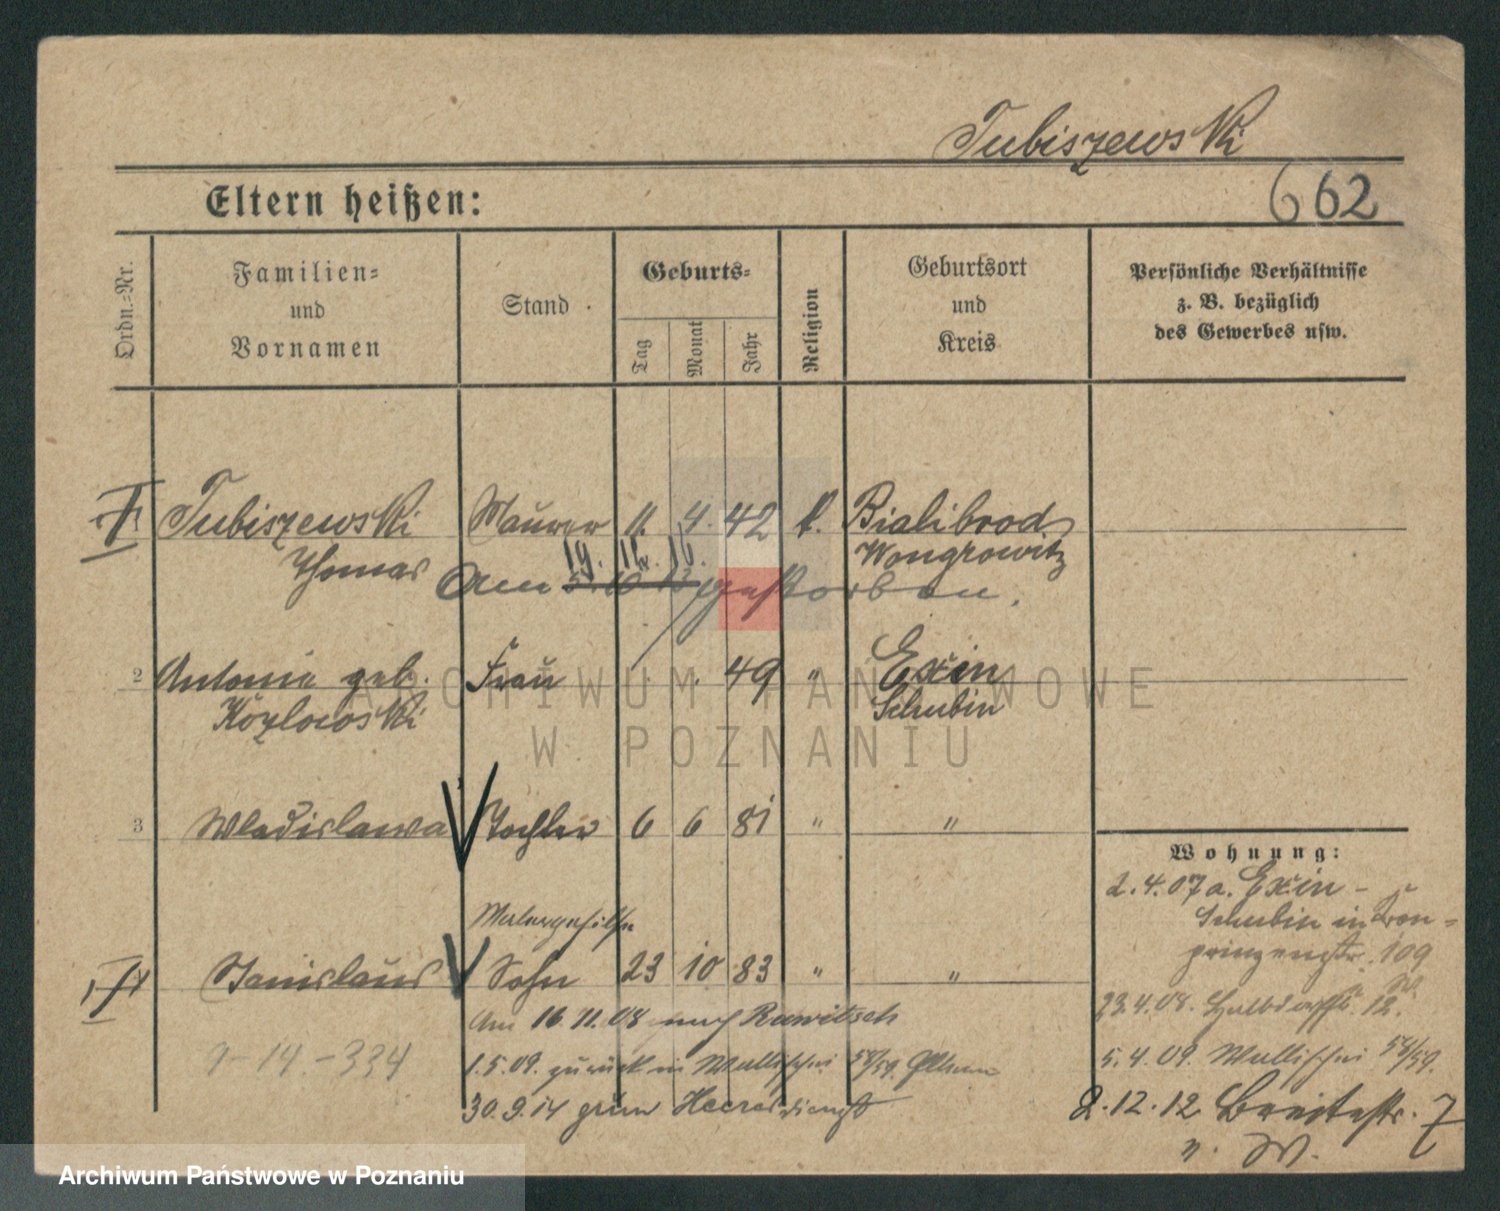 Tubiszewski
Eltern heißen:
662
Ordn.=Nr.
Familien=
und
Vornamen
Stand
Geburts=
Tag
Monat
Jahr
Religion
Geburtsort
und
Kreis
Persönliche Verhältnisse
z. B. bezüglich
des Gewerbes usw.
Tubiszewski Maurer 11. 4. 42 k. Bialibrod
Thomas Wongrowitz
19. 11. 16.
Am gestorben.
2 Antonie geb. Frau 49 " Exin
Kozlowski Schubin
3 Wladislawa Tochter 6 6 81 " "
Malergehilfe
Stanislaus Sohn 23 10 83 " "
Am 16.11.08 nach Rawitsch
1.5.09. zurück in Wallischei 58/59. Eltern
30.9.14 zum Heeresdienst
9-14.-334
Wohnung:
2.4.07 a. Exin -
Schubin in Kron=
prinzenstr. 109
23.4.08. Halbdorfstr. 12.
5.4.09. Wallischei 58/59.
2.12.12 Breitestr. 7
n. W.
ARCHIWUM PAŃSTWOWE
W POZNANIU
Archiwum Państwowe w Poznaniu